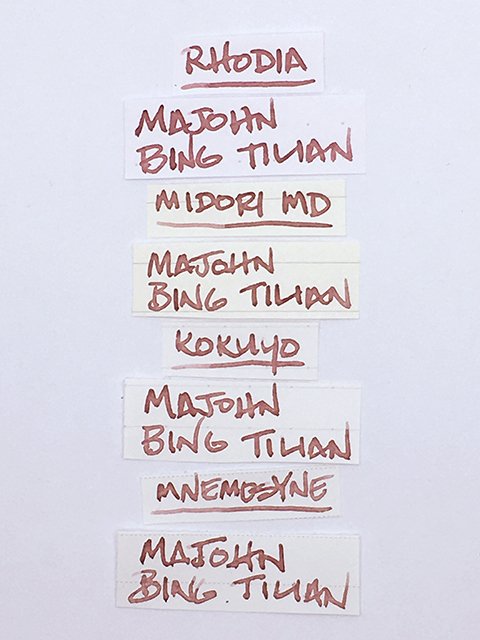 RHODIA
MAJOHN
BING TILIAN
MIDORI MD
MAJOHN
BING TILIAN
KOKUYO
MAJOHN
BING TILIAN
MNEMOSYNE
MAJOHN
BING TILIAN